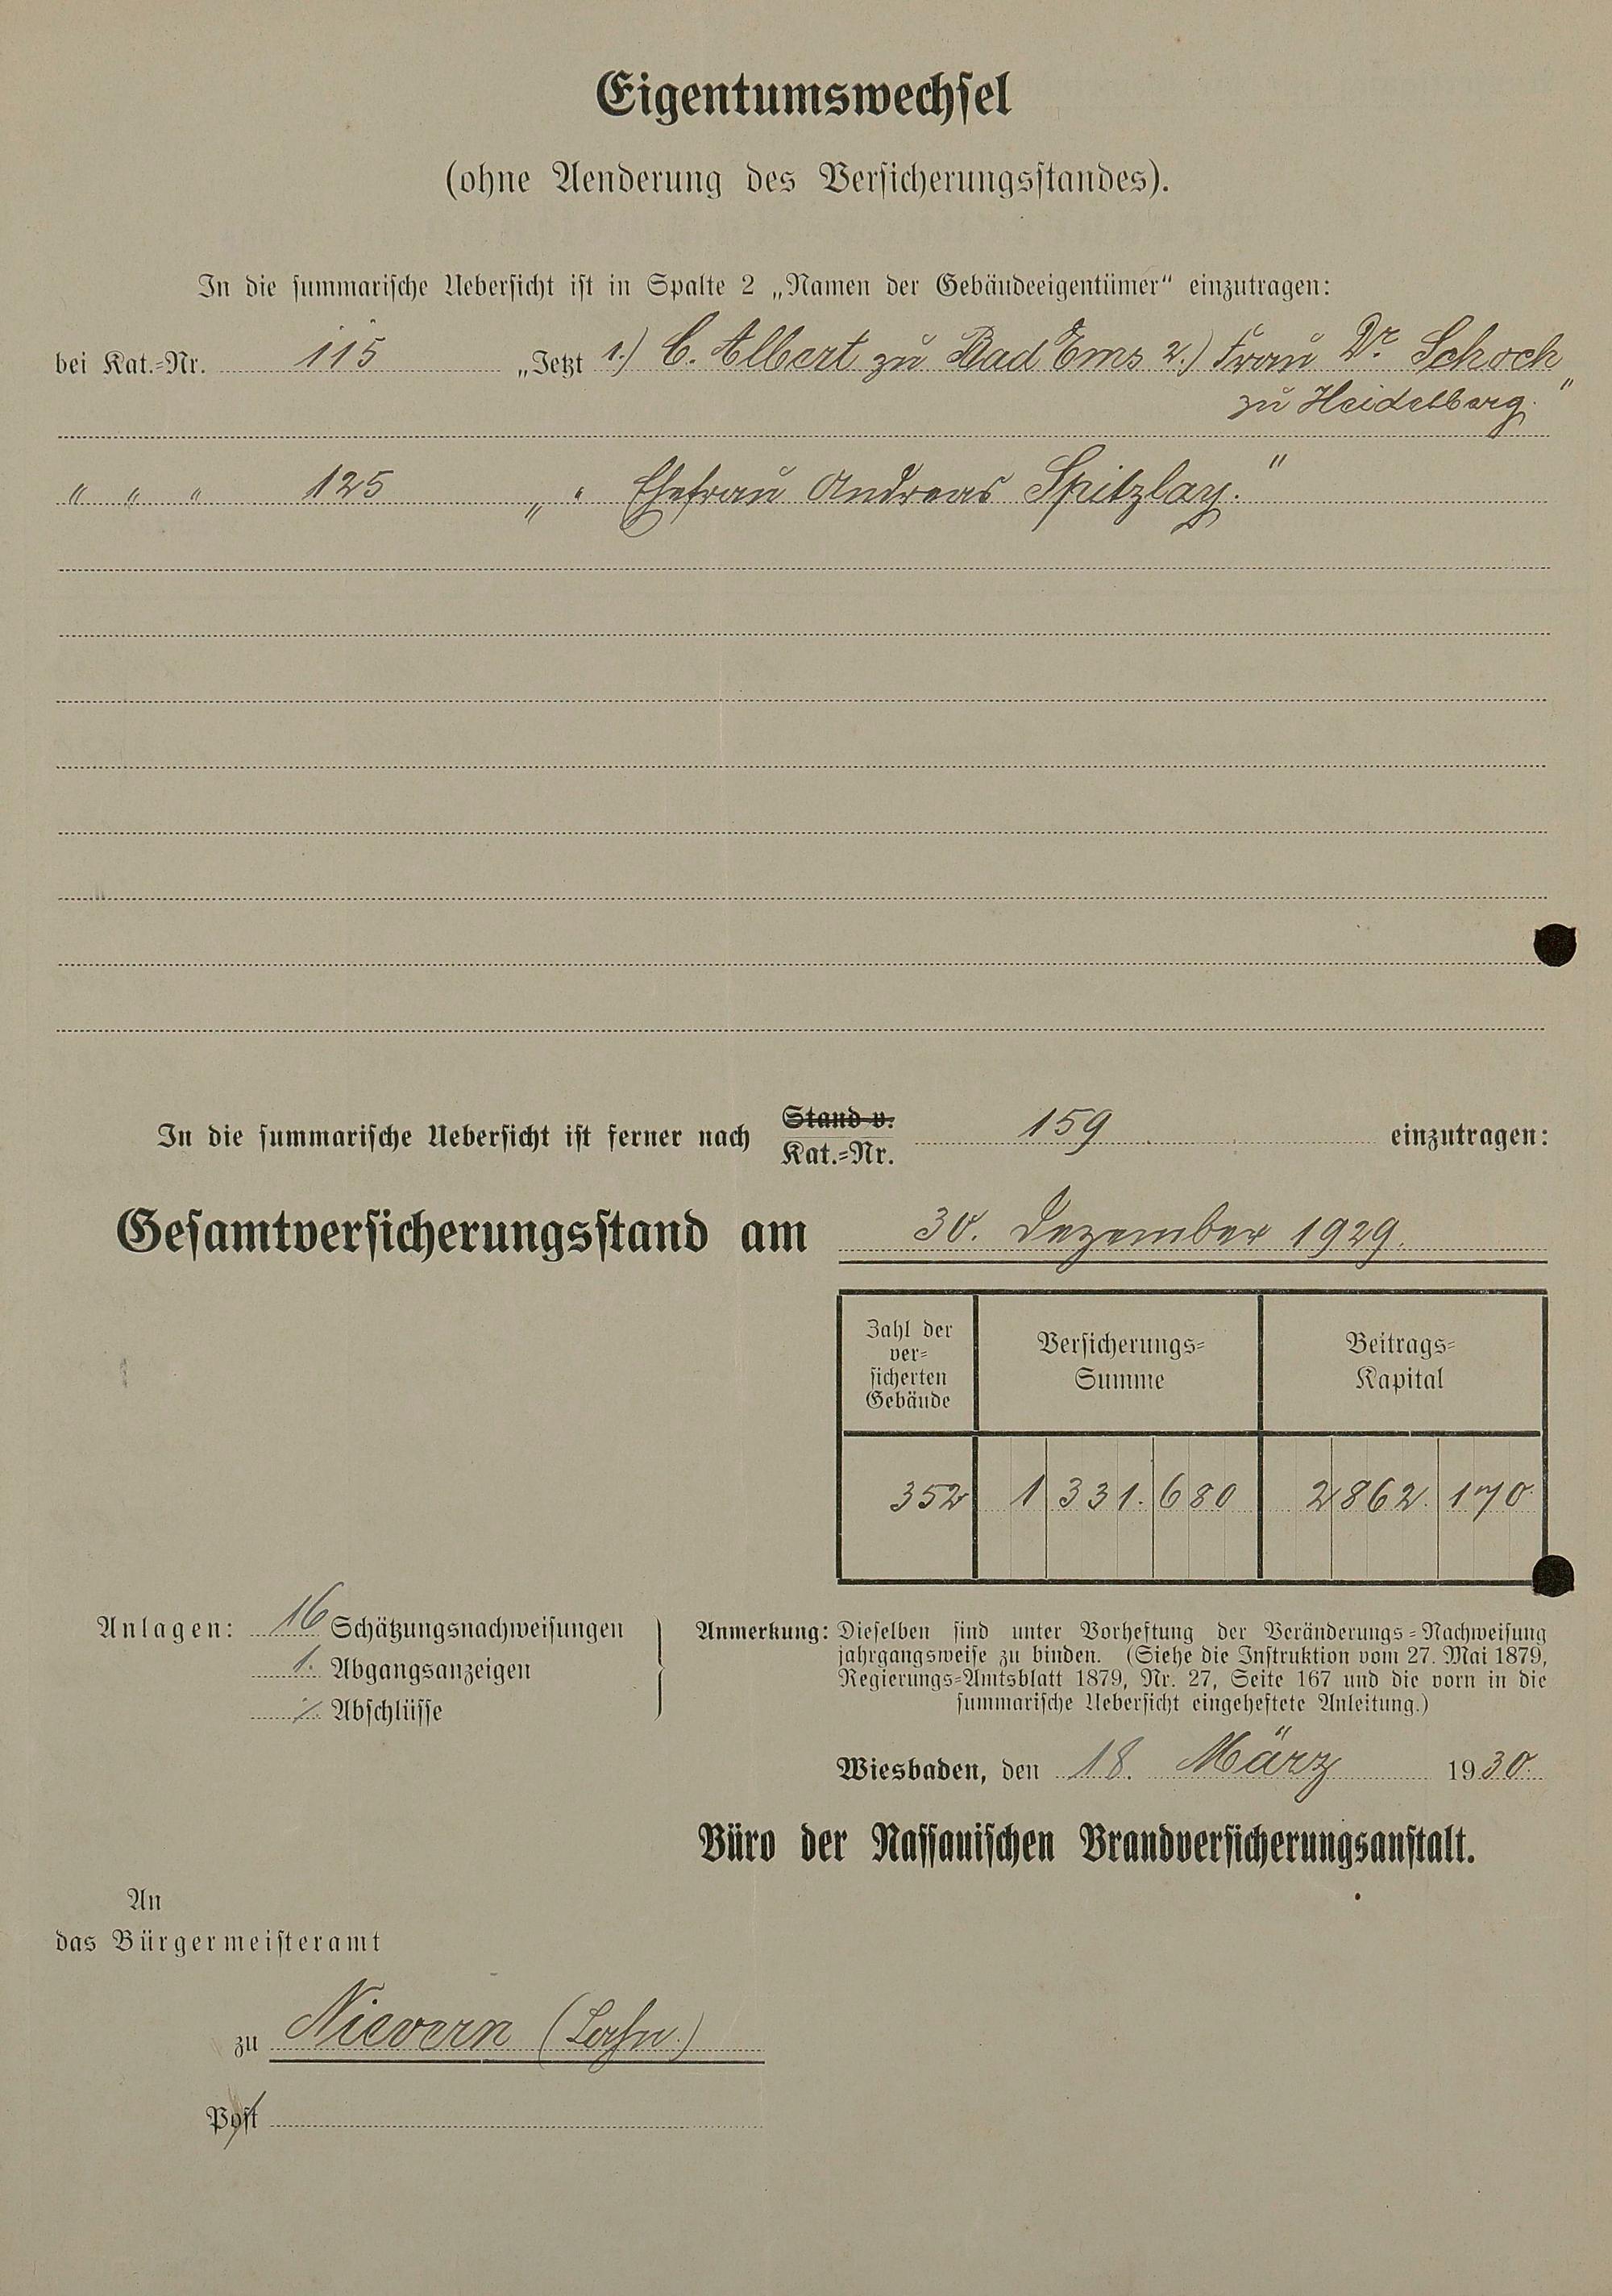 Eigentumswechsel
(ohne Aenderung des Versicherungsstandes).
In die summarische Uebersicht ist in Spalte 2 „Namen der Gebäudeeigentümer“ einzutragen:
bei Kat.-Nr. 115 „Jetzt 1.) C. Albert zu Bad Ems 2.) Frau Dr. Schoch
zu Heidelberg.“
" " " 125 „ " Ehefrau Andreas Spitzlay.“
In die summarische Uebersicht ist ferner nach Stand v. Kat.-Nr. 159 einzutragen:
Gesamtversicherungsstand am 30. Dezember 1929.
Zahl der
ver-
sicherten
Gebäude
Versicherungs-
Summe
Beitrags-
Kapital
352 1 331.680 2862.170
Anlagen: 16 Schätzungsnachweisungen
1. Abgangsanzeigen
⁒ Abschlüsse
Anmerkung: Dieselben sind unter Vorheftung der Veränderungs-Nachweisung
jahrgangsweise zu binden. (Siehe die Instruktion vom 27. Mai 1879,
Regierungs-Amtsblatt 1879, Nr. 27, Seite 167 und die vorn in die
summarische Uebersicht eingeheftete Anleitung.)
Wiesbaden, den 18. März 1930.
Büro der Nassauischen Brandversicherungsanstalt.
An
das Bürgermeisteramt
zu Nievern (Lahn.)
Post